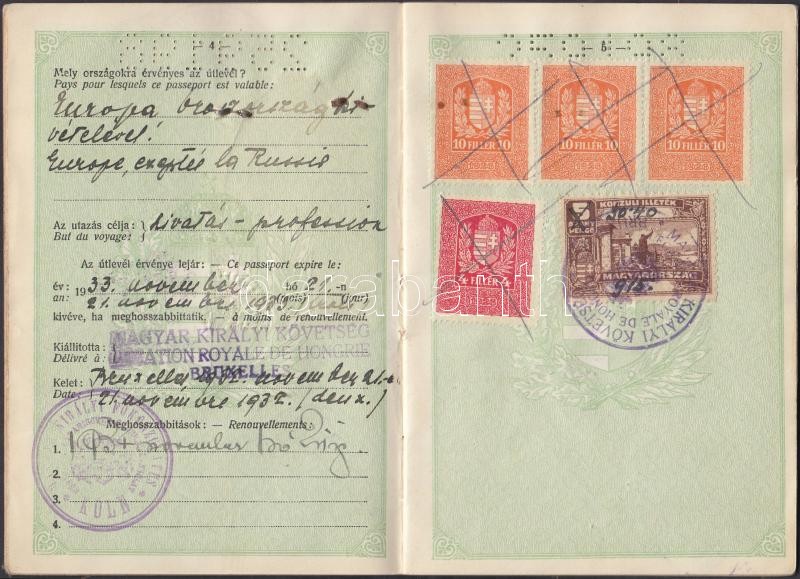 - 4 -
Mely országokra érvényes az útlevél?
Pays pour lesquels ce passeport est valable:
Europa Oroszország ki-
vételével!
Europe, excepté la Russie
Az utazás célja: } hivatás - profession
But du voyage: }
Az útlevél érvénye lejár: — Ce passeport expire le:
év: 1933. november hó 21.-n
an: 21. novembre 1933 (mois) (jour)
kivéve, ha meghosszabbittatik. — à moins de renouvellement.
Kiállitotta: } MAGYAR KIRÁLYI KÖVETSÉG
Délivré à: } LEGATION ROYALE DE HONGRIE
BRUXELLES
Kelet: Bruxelles 1932. november 21.-én
Date: 21. novembre 1932. (deux.)
Meghosszabbitások: — Renouvellements:
1. 1934 november hó
2.
3.
4.
KÖLN
- 5 -
10 FILLÉR 10
10 FILLÉR 10
10 FILLÉR 10
4 FILLÉR 4
KONZULI ILLETÉK
MAGYARORSZÁG
KIRÁLYI KÖVETSÉG
ROYALE DE HON
darabanth